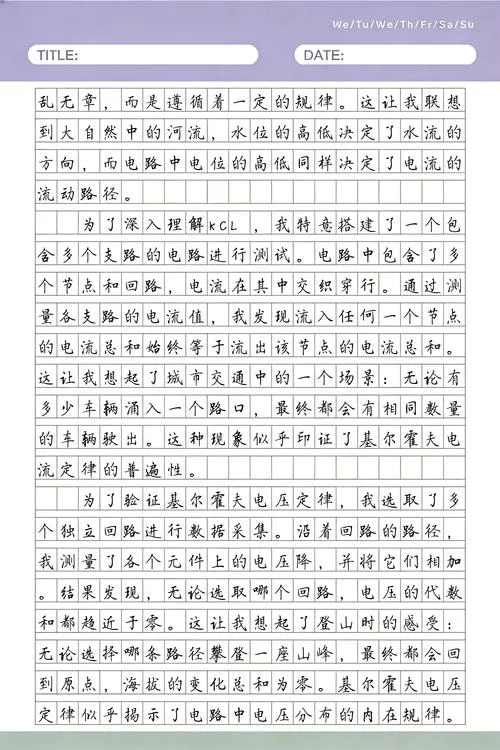 We/Tu/We/Th/Fr/Sa/Su
TITLE: DATE:
乱无章，而是遵循着一定的规律。这让我联想
到大自然中的河流，水位的高低决定了水流的
方向，而电路中电位的高低同样决定了电流的
流动路径。
为了深入理解KCL，我特意搭建了一个包
含多个支路的电路进行测试。电路中包含了多
个节点和回路，电流在其中交织穿行。通过测
量各支路的电流值，我发现流入任何一个节点
的电流总和始终等于流出该节点的电流总和。
这让我想起了城市交通中的一个场景：无论有
多少车辆涌入一个路口，最终都会有相同数量
的车辆驶出。这种现象似乎印证了基尔霍夫电
流定律的普遍性。
为了验证基尔霍夫电压定律，我选取了多
个独立回路进行数据采集。沿着回路的路径，
我测量了各个元件上的电压降，并将它们相加
。结果发现，无论选取哪个回路，电压的代数
和都趋近于零。这让我想起了登山时的感受：
无论选择哪条路径攀登一座山峰，最终都会回
到原点，海拔的变化总和为零。基尔霍夫电压
定律似乎揭示了电路中电压分布的内在规律。